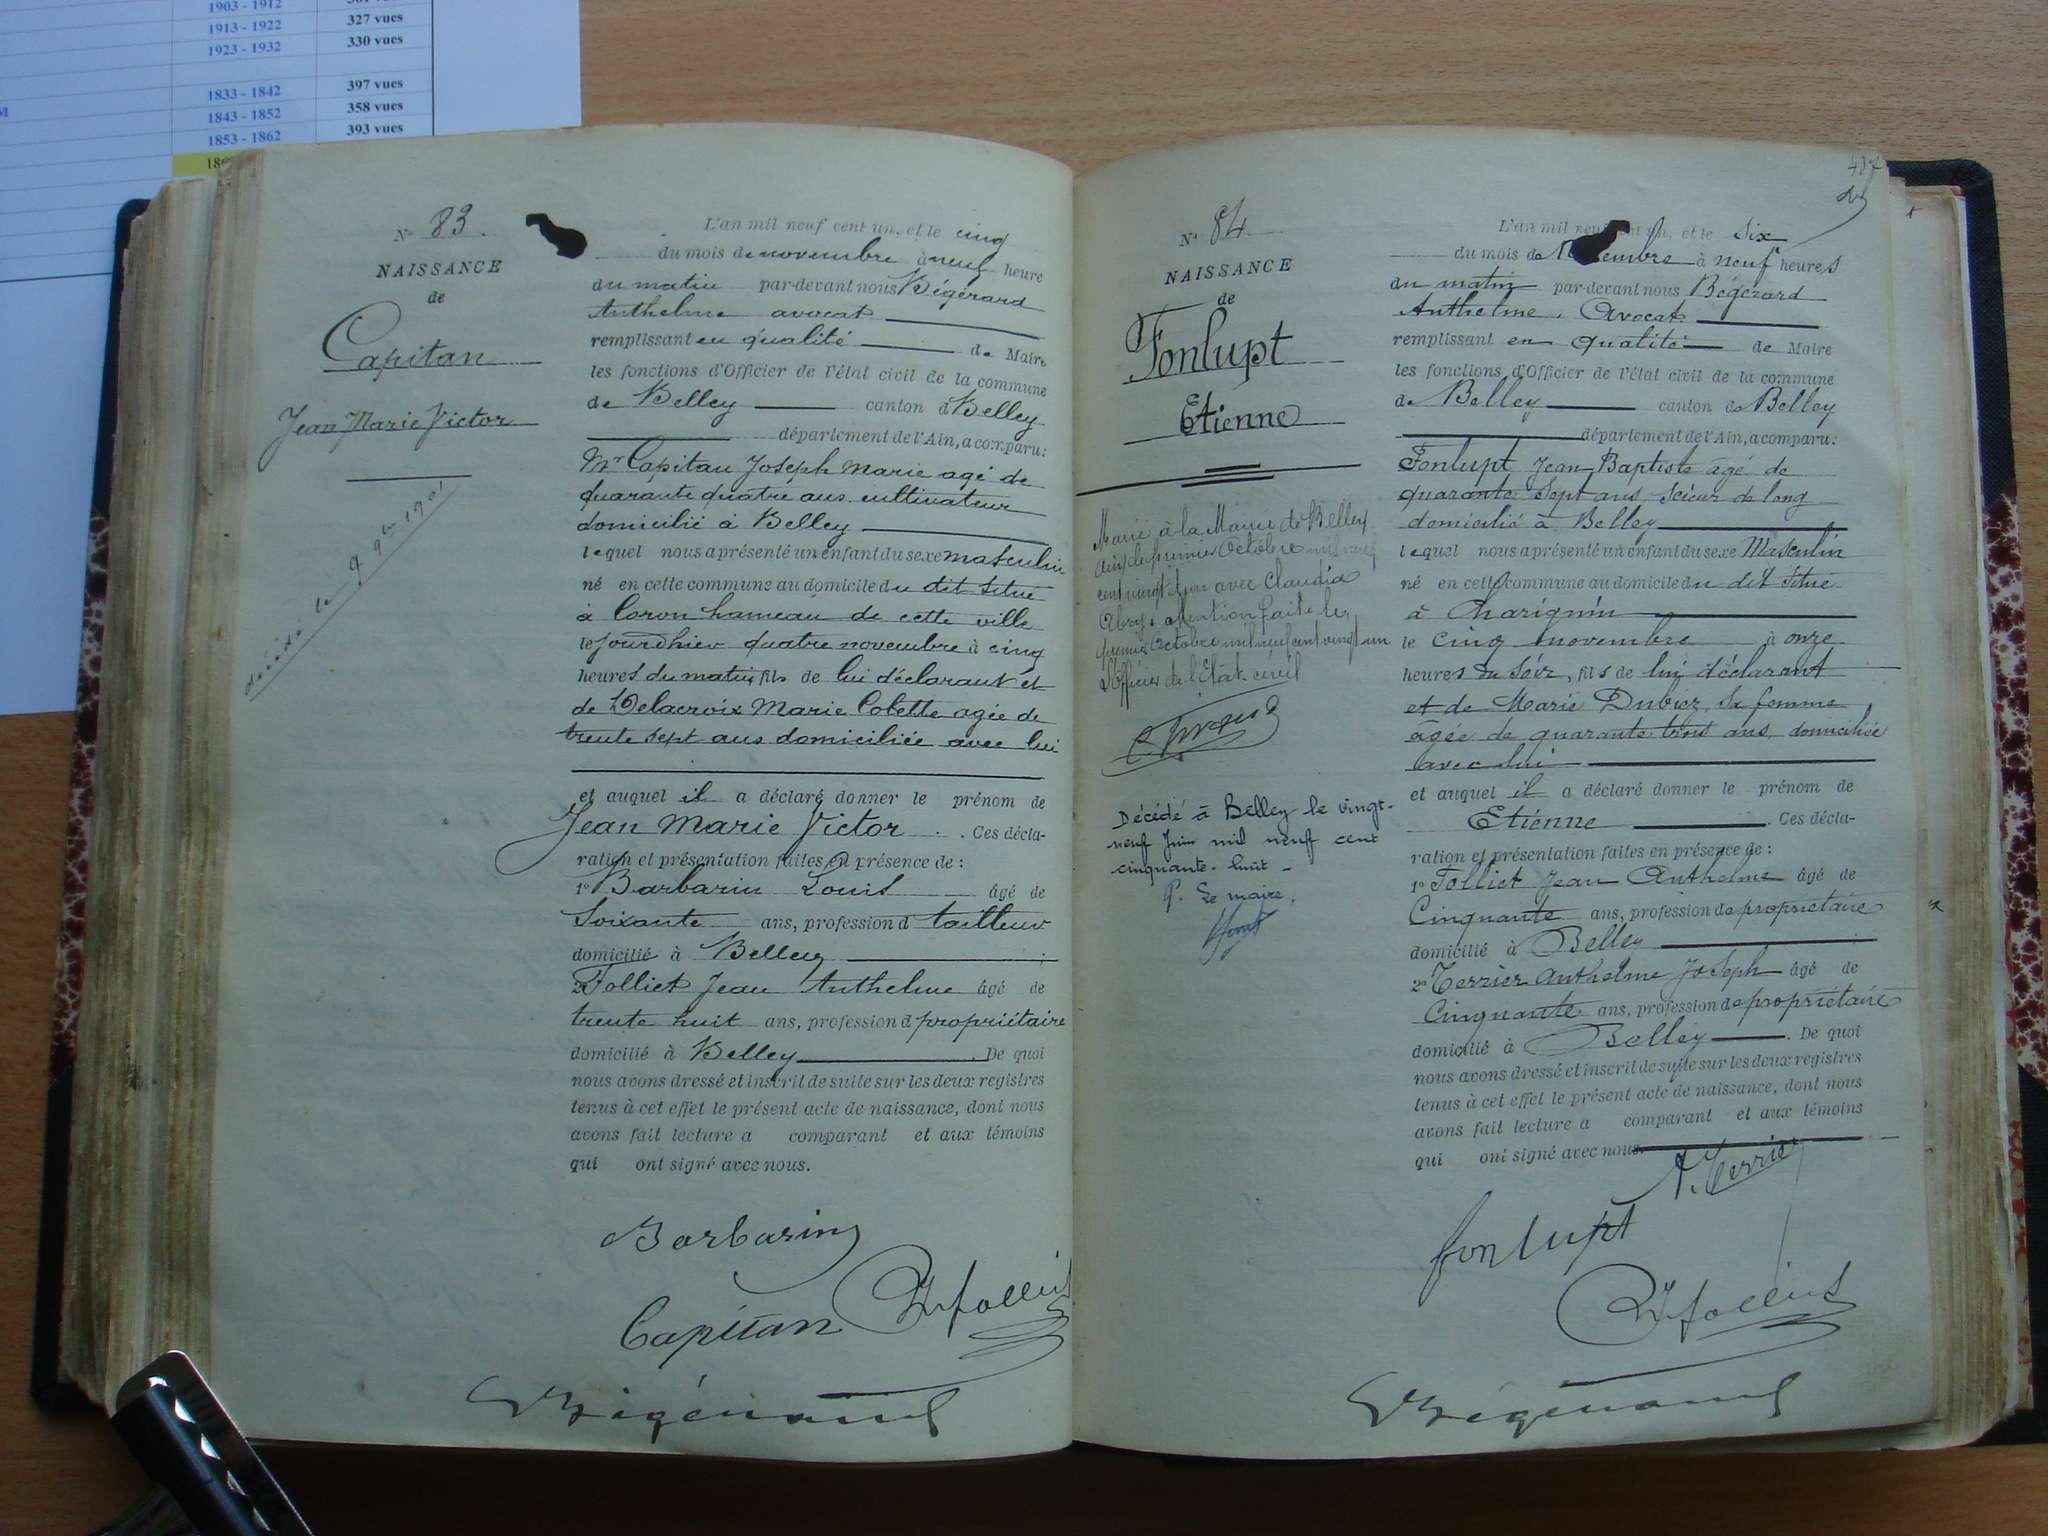 1903 - 1912
1913 - 1922 327 vues
1923 - 1932 330 vues
1833 - 1842 397 vues
1843 - 1852 358 vues
1853 - 1862 393 vues
N° 83.
NAISSANCE
de
Capitan
Jean Marie Victor
décédé le 9 9bre 1901
L'an mil neuf cent un, et le cinq
du mois de novembre à neuf heure
du matin par-devant nous Bégérard
Anthelme avocat
remplissant en qualité de Maire
les fonctions d'Officier de l'état civil de la commune
de Belley canton d Belley
département de l'Ain, a comparu:
Mr Capitan Joseph Marie agé de
quarante quatre ans cultivateur
domicilié à Belley
lequel nous a présenté un enfant du sexe masculin
né en cette commune au domicile du dit situé
à Coron hameau de cette ville
le jourdhier quatre novembre à cinq
heures du matin, fils de lui déclarant et
de Delacroix Marie Colette agée de
trente sept ans domiciliée avec lui
et auquel il a déclaré donner le prénom de
Jean Marie Victor . Ces décla-
ration et présentation faites en présence de :
1° Barbarin Louis âgé de
Soixante ans, profession d tailleur
domicilié à Belley
2° Folliet Jean Anthelme âgé de
trente huit ans, profession d propriétaire
domicilié à Belley . De quoi
nous avons dressé et inscrit de suite sur les deux registres
tenus à cet effet le présent acte de naissance, dont nous
avons fait lecture a comparant et aux témoins
qui ont signé avec nous.
Barbarin
Capitan JA folliet
Bégérard
437
N° 84
NAISSANCE
de
Fonlupt
Etienne
Marié à la Mairie de Belley
Ain, le premier Octobre mil neuf
cent vingt et un avec Claudia
Abry. Mention faite le
premier Octobre mil neuf cent vingt un
L'Officier de l'Etat civil
Décédé à Belley le vingt-
neuf Juin mil neuf cent
cinquante-huit -
P. Le maire,
L'an mil neuf cent un, et le six
du mois de Novembre à neuf heures
du matin par-devant nous Bégérard
Anthelme, Avocat
remplissant en qualité de Maire
les fonctions d'Officier de l'état civil de la commune
de Belley canton de Belley
département de l'Ain, a comparu:
Fonlupt Jean Baptiste âgé de
quarante sept ans, scieur de long
domicilié à Belley
lequel nous a présenté un enfant du sexe Masculin
né en cette commune au domicile du dit situé
à Charignin
le cinq novembre à onze
heures du soir, fils de lui déclarant
et de Marie Dubiez, sa femme
âgée de quarante trois ans, domiciliée
avec lui
et auquel il a déclaré donner le prénom de
Etienne . Ces décla-
ration et présentation faites en présence de :
1° Folliet Jean Anthelme âgé de
Cinquante ans, profession de propriétaire
domicilié à Belley
2° Terrier Anthelme Joseph âgé de
Cinquante ans, profession de propriétaire
domicilié à Belley . De quoi
nous avons dressé et inscrit de suite sur les deux registres
tenus à cet effet le présent acte de naissance, dont nous
avons fait lecture a comparant et aux témoins
qui ont signé avec nous.
A. Terrier
fonlupt
JA folliet
Bégérard